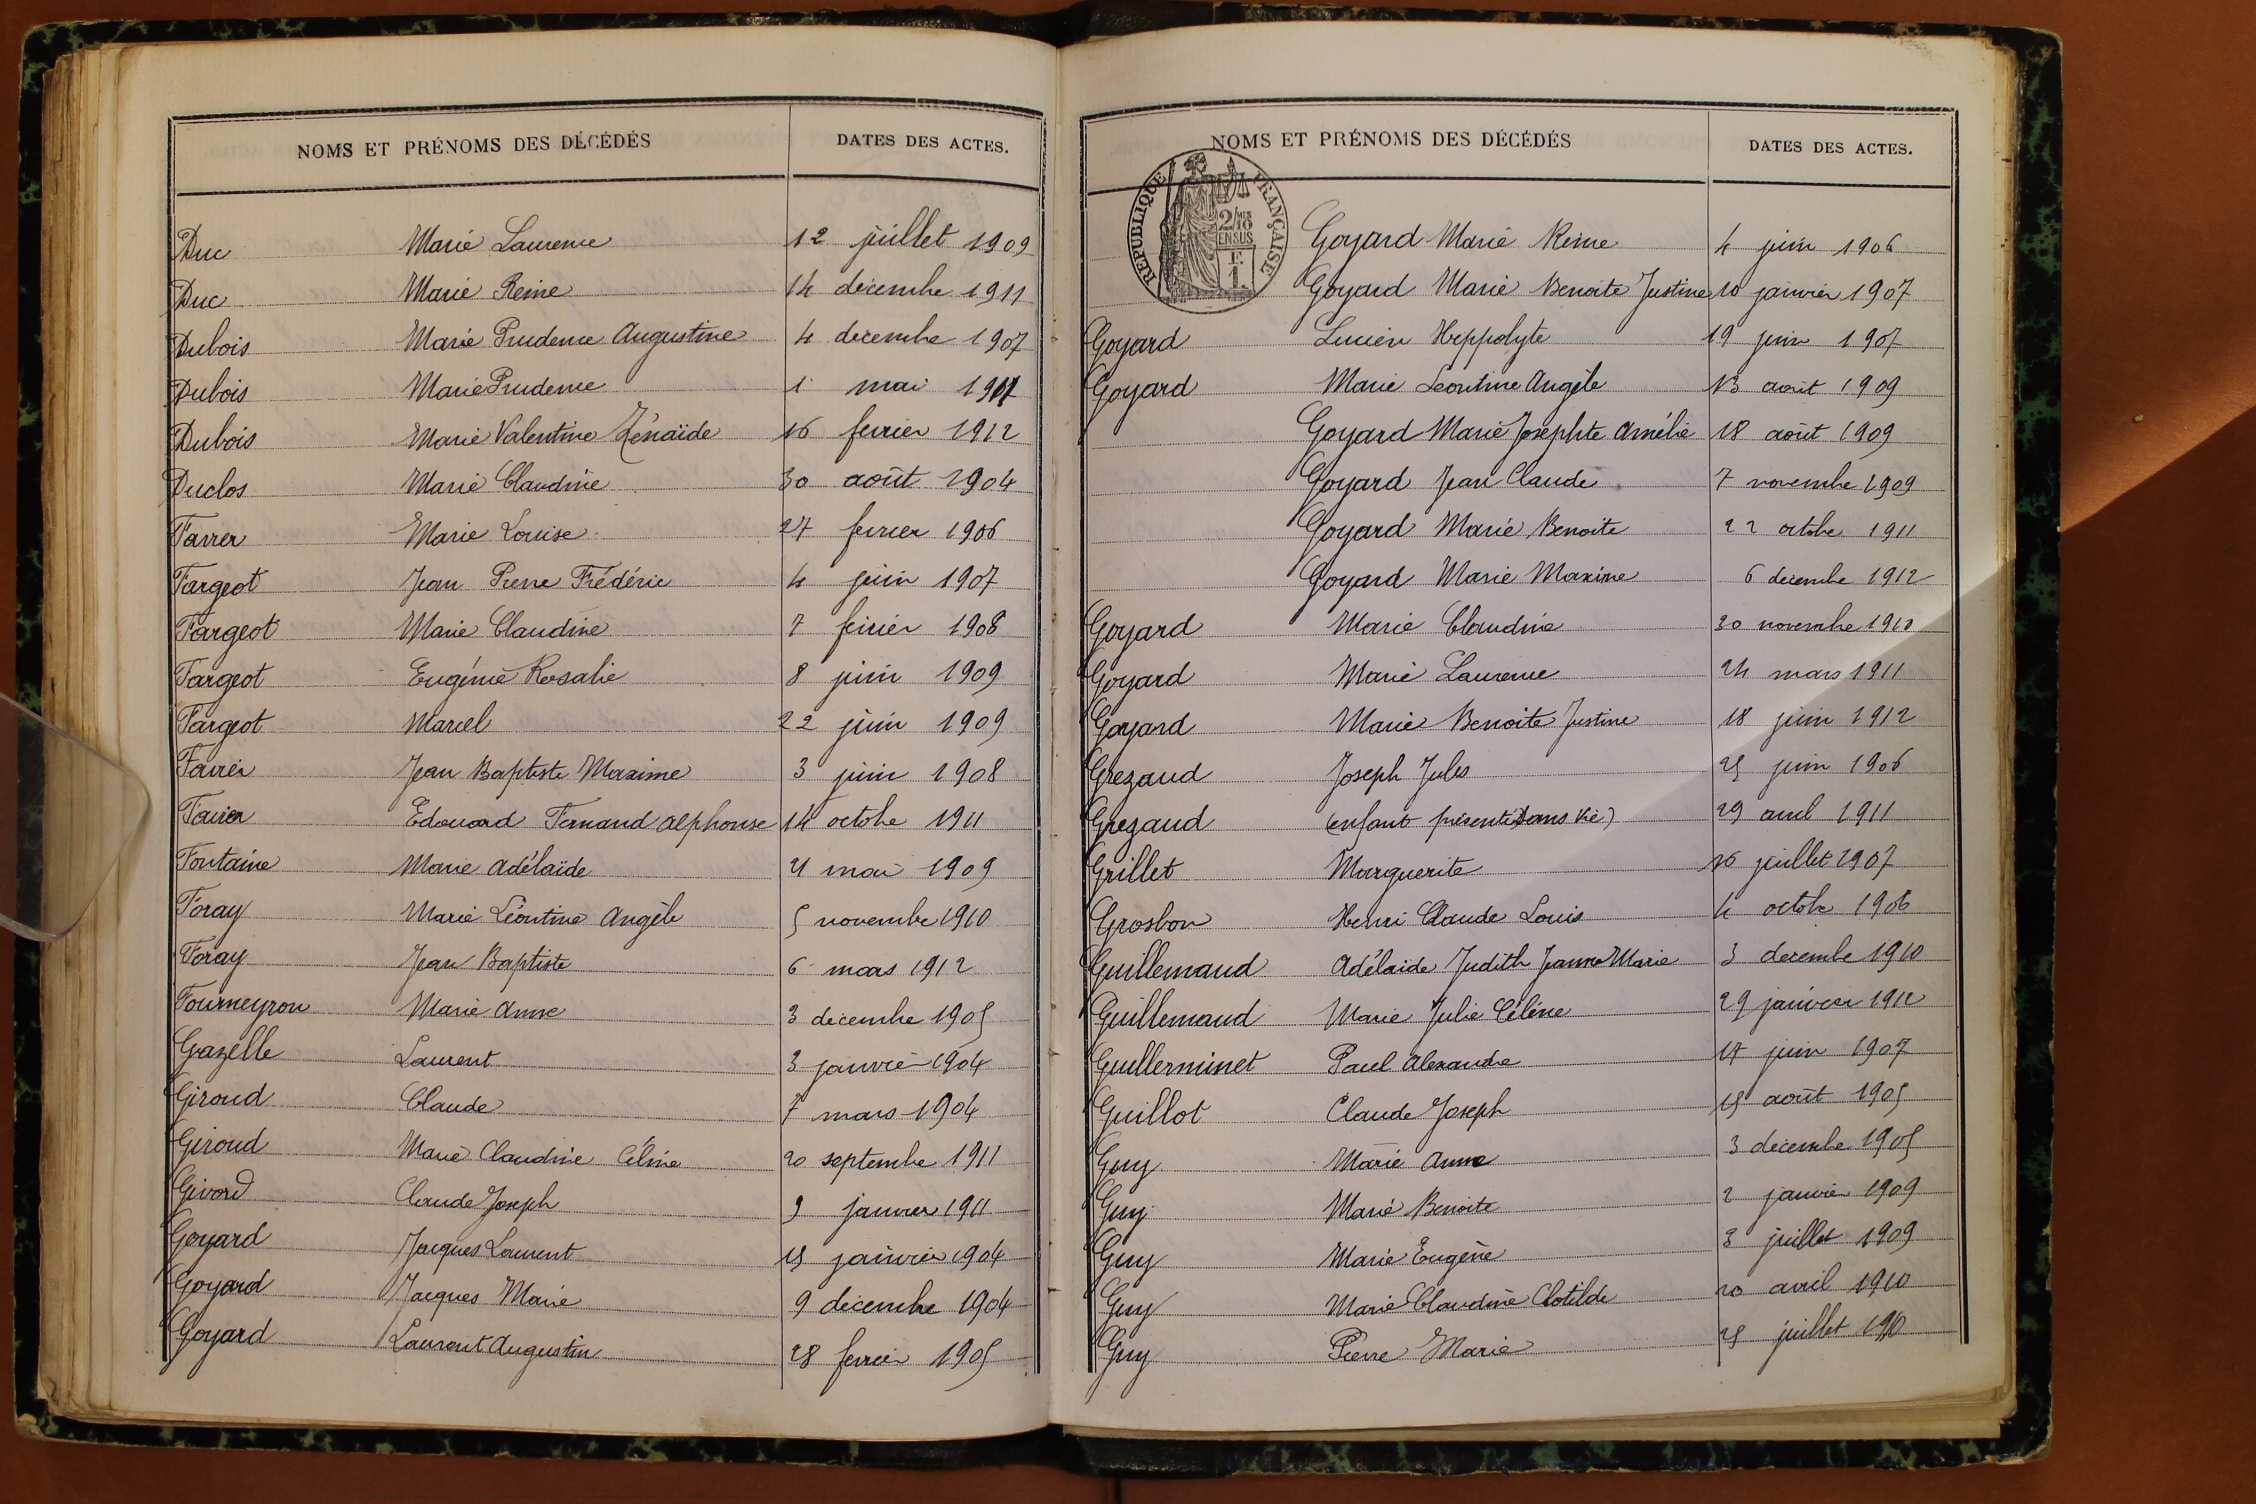 NOMS ET PRÉNOMS DES DÉCÉDÉS DATES DES ACTES.
Duc Marie Laurence 12 juillet 1909
Duc Marie Reine 14 décembre 1911
Dubois Marie Prudence Augustine 4 décembre 1907
Dubois Marie Prudence 1 mai
Dubois Marie Valentine Zénaïde 16 fevrier 1912
Duclos Marie Claudine 30 août 1904
Farrer Marie Louise 27 fevrier 1906
Fargeot Jean Pierre Frédéric 4 juin 1907
Fargeot Marie Claudine 7 fevrier 1908
Fargeot Eugénie Rosalie 8 juin 1909
Fargeot Marcel 22 juin 1909
Favier Jean Baptiste Maxime 3 juin 1908
Favier Edouard Fernand Alphonse 14 octobre 1911
Fontaine Marie Adélaïde mai 1909
Foray Marie Léontine Angèle 5 novembre 1910
Foray Jean Baptiste 6 mars 1912
Fourneyron Marie Anne 3 décembre 1905
Gazelle Laurent 3 janvier 1904
Giroud Claude 7 mars 1904
Giroud Marie Claudine Céline 20 septembre 1911
Givord Claude Joseph 9 janvier 1911
Goyard Jacques Laurent 15 janvier 1904
Goyard Jacques Marie 9 décembre 1904
Goyard Laurent Augustin 28 fevrier 1905
NOMS ET PRÉNOMS DES DÉCÉDÉS DATES DES ACTES.
RÉPUBLIQUE FRANÇAISE
2/10MES
EN SUS
F.
1.
Goyard Marie Reine 4 juin 1906
Goyard Marie Benoite Justine 10 janvier 1907
Goyard Lucien Hippolyte 19 juin 1907
Goyard Marie Léontine Angèle 13 août 1909
Goyard Marie Josephte Amélie 18 août 1909
Goyard Jean Claude 7 novembre 1909
Goyard Marie Benoite 22 octobre 1911
Goyard Marie Maxime 6 décembre 1912
Goyard Marie Claudine 30 novembre 1910
Goyard Marie Laurence 24 mars 1911
Goyard Marie Benoite Justine 18 juin 1912
Grezaud Joseph Jules 25 juin 1906
Grezaud (enfant présenté sans vie) 29 avril 1911
Grillet Marguerite 16 juillet 1907
Grosbon Henri Claude Louis 4 octobre 1906
Guillemaud Adélaide Judith Jeanne Marie 3 decembre 1910
Guillemaud Marie Julie Céline 29 janvier 1912
Guillerminet Paul Alexandre 17 juin 1907
Guillot Claude Joseph 15 août 1905
Guy Marie Anne 3 décembre 1905
Guy Marie Benoite 2 janvier 1909
Guy Marie Eugène 3 juillet 1909
Guy Marie Claudine Clotilde 20 avril 1910
Guy Pierre Marie 25 juillet 1910